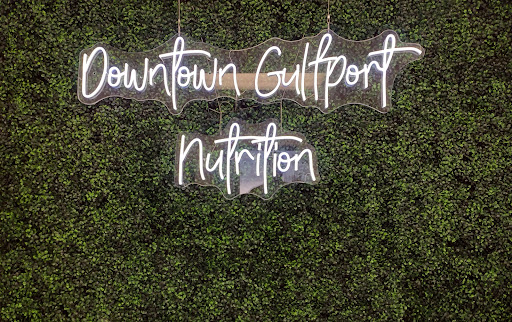 Downtown Gulfport
Nutrition